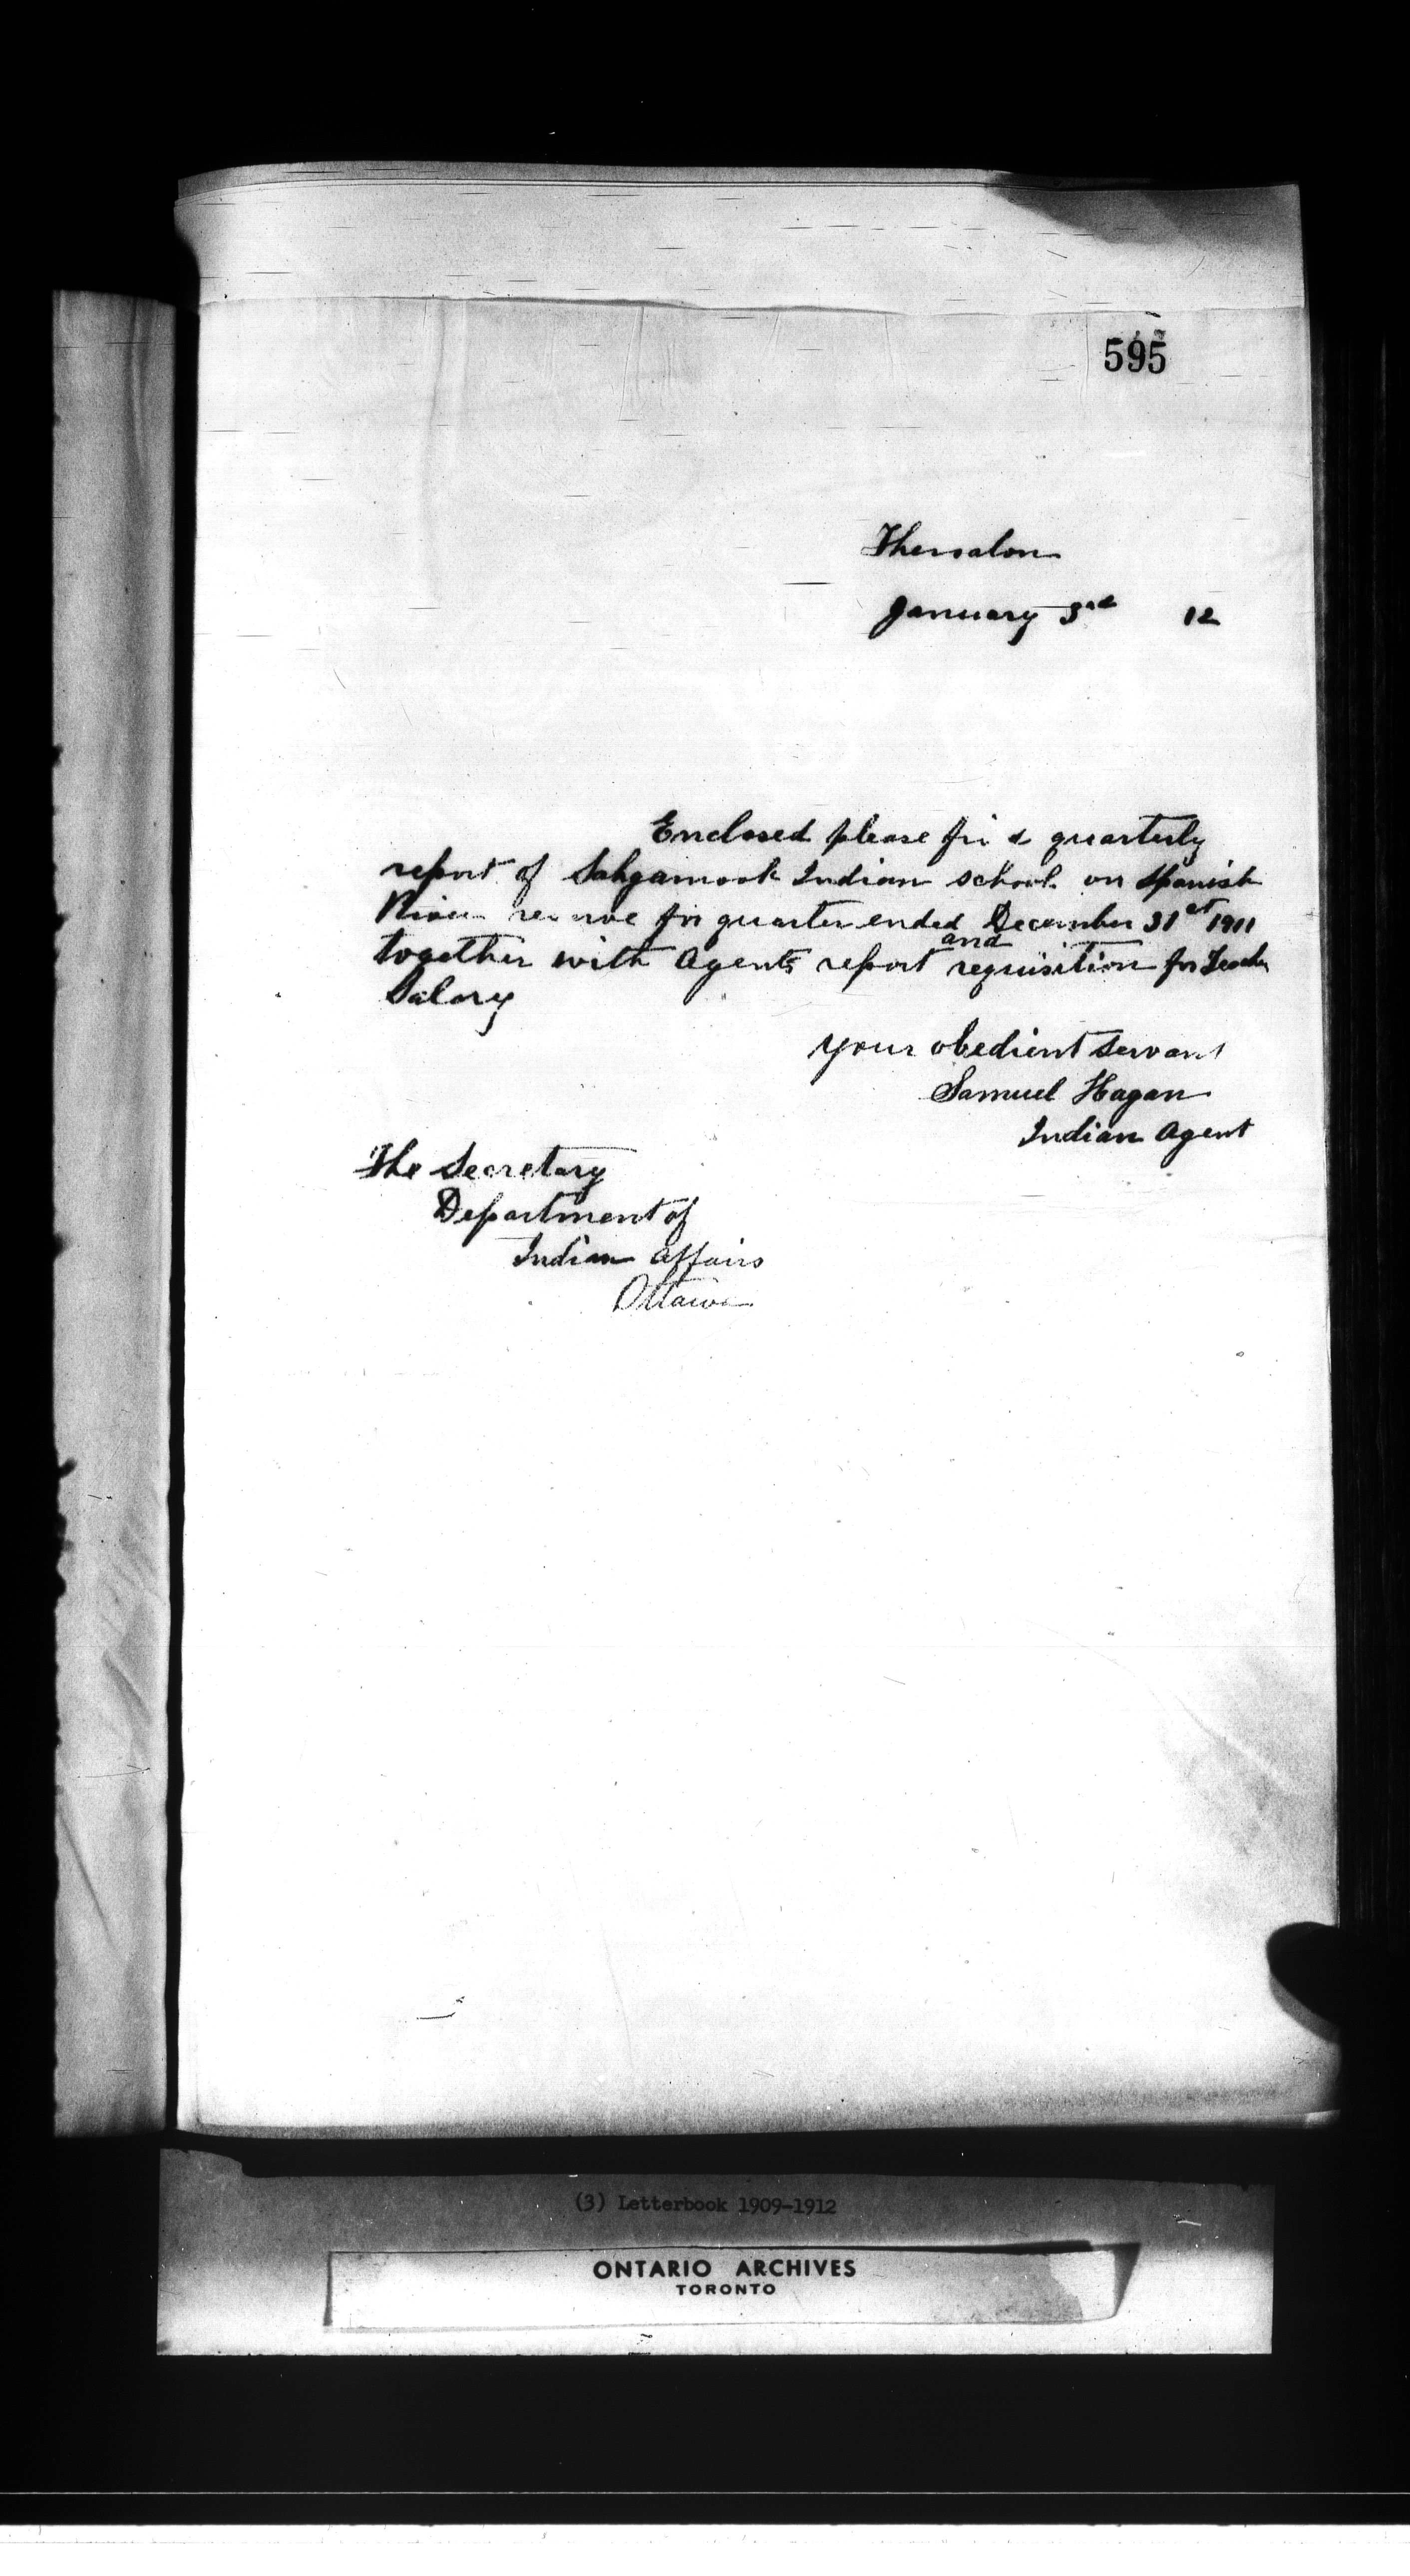 595
Thessalon
January 3rd 12
Enclosed please find quarterly
report of Sahgamook Indian school on Spanish
River reserve for quarter ended December 31st 1911
together with Agents report and requisition for Teacher
Salary
your obedient servant
Samuel Hagan
Indian Agent
The Secretary
Department of
Indian Affairs
Ottawa
(3) Letterbook 1909-1912
ONTARIO ARCHIVES
TORONTO